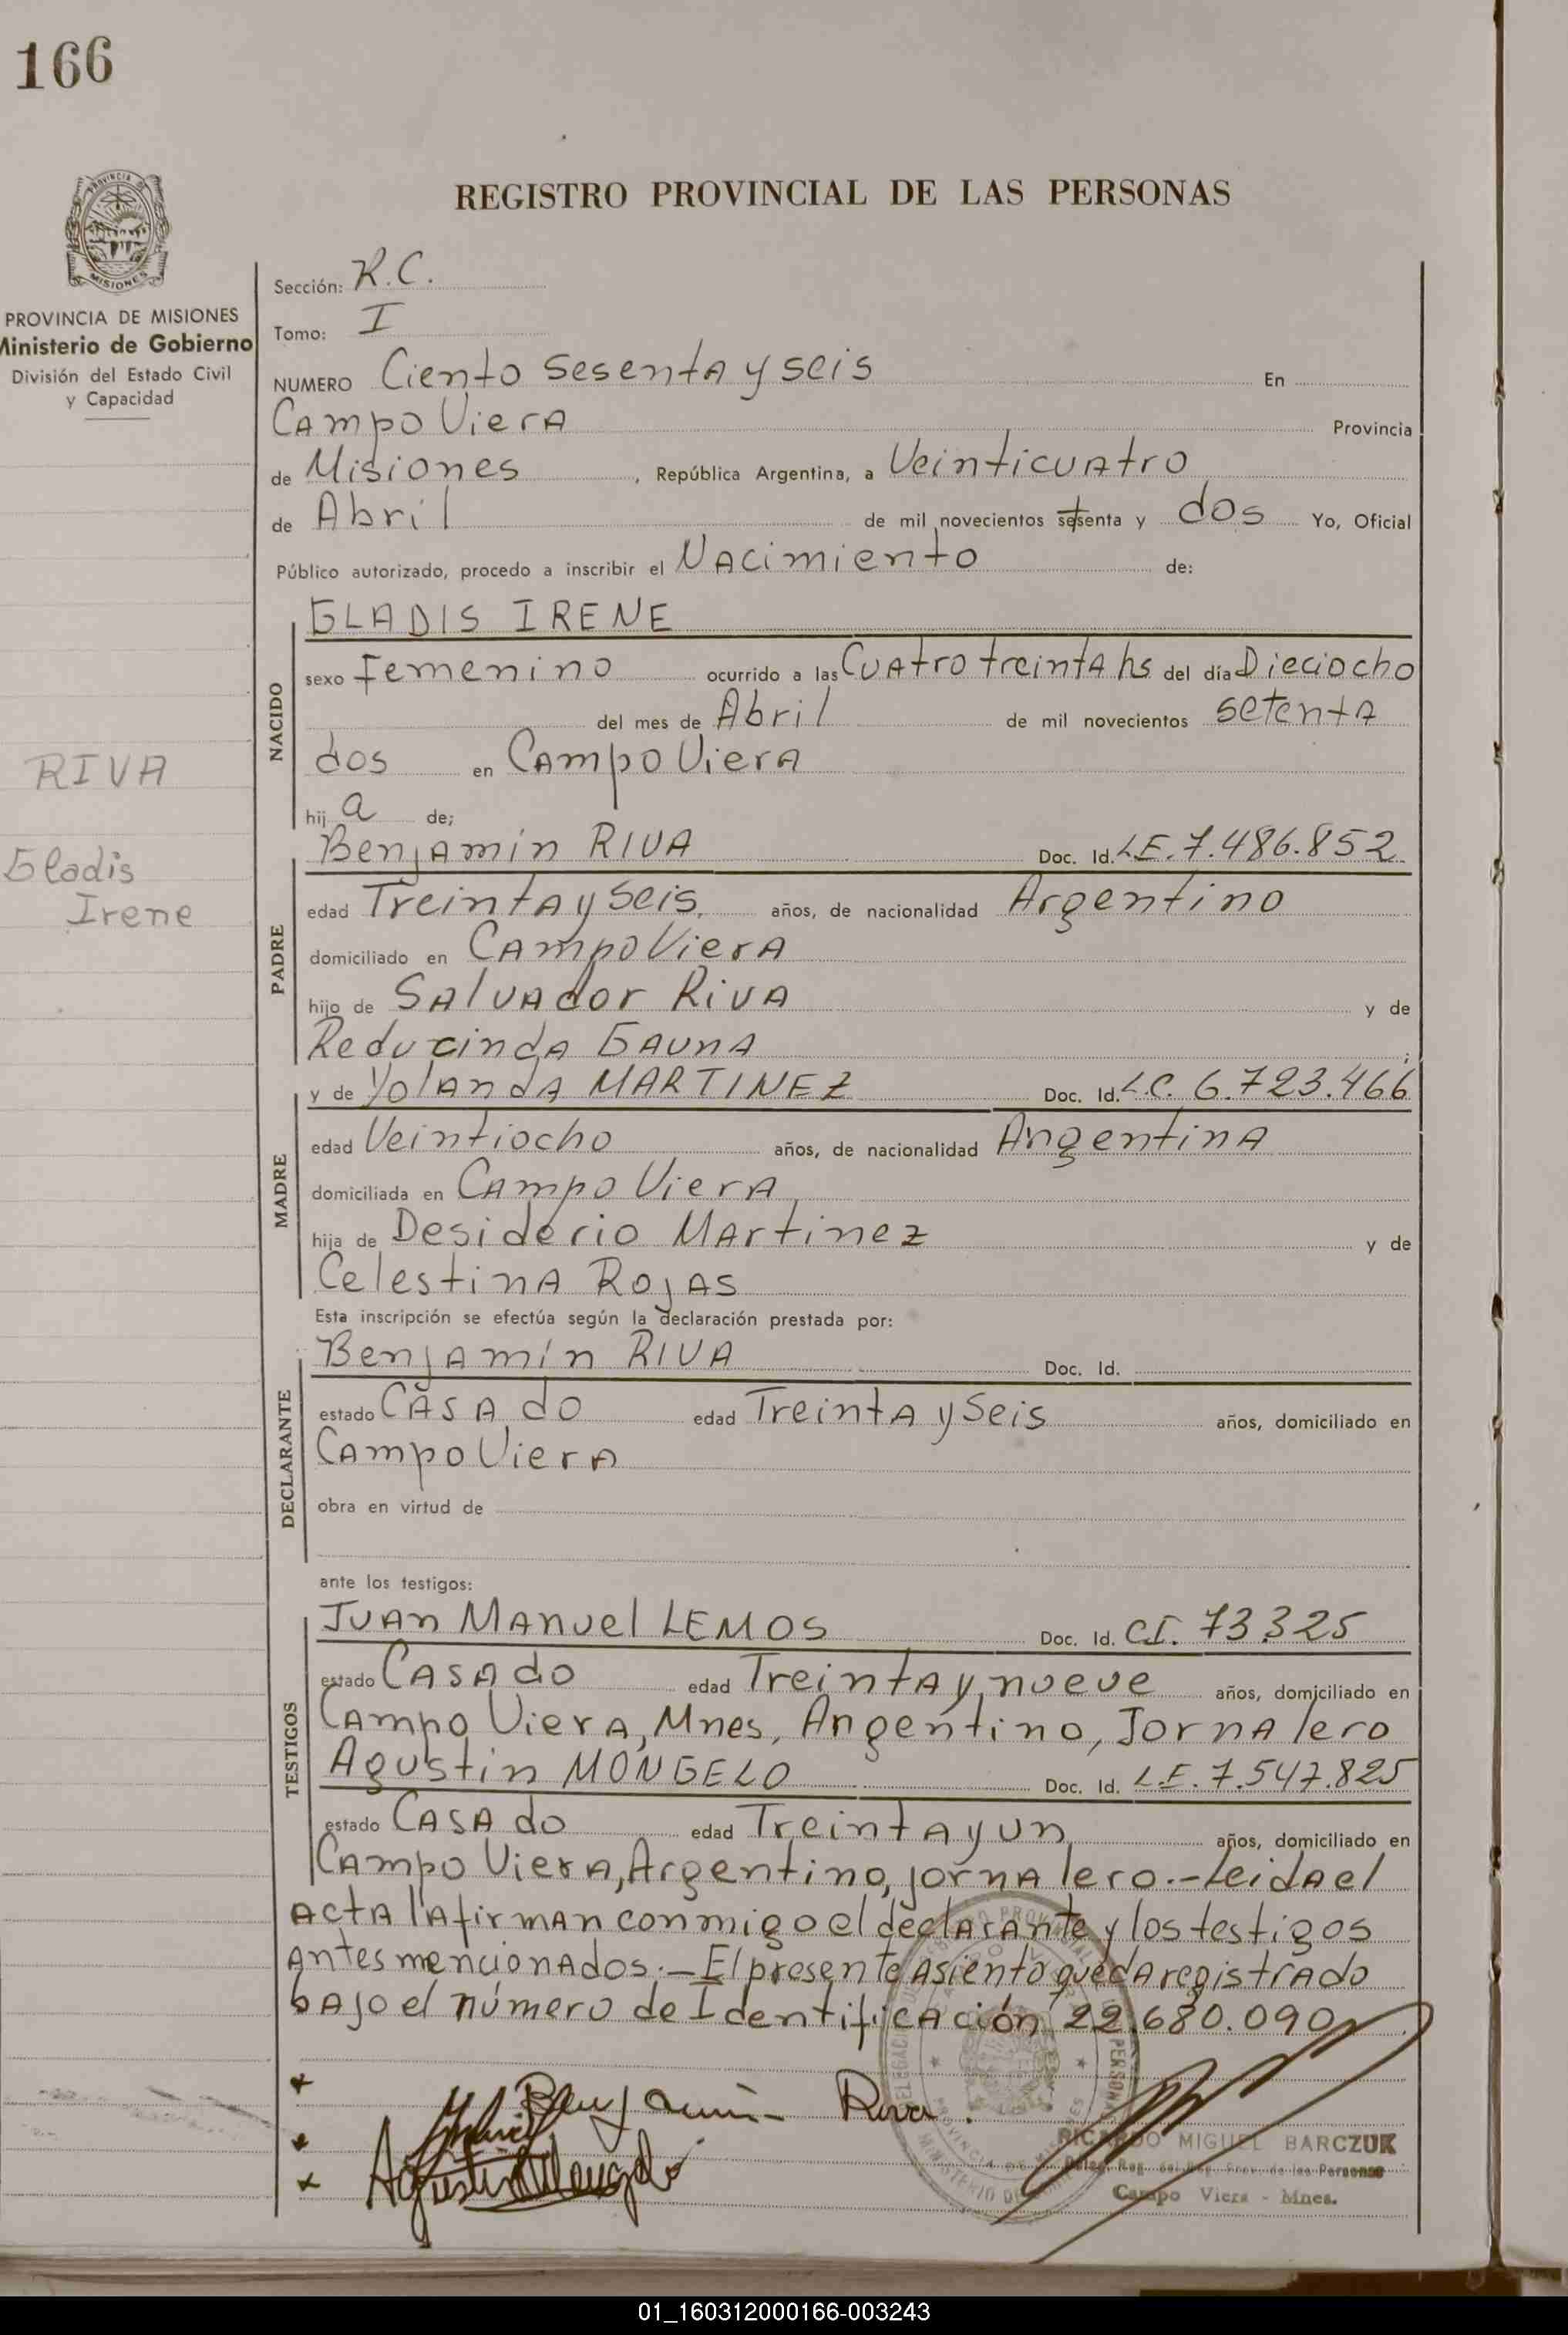 166
REGISTRO PROVINCIAL DE LAS PERSONAS
PROVINCIA DE
MISIONES
PROVINCIA DE MISIONES
Ministerio de Gobierno
División del Estado Civil
y Capacidad
RIVA
Gladis
Irene
Sección: R.C.
Tomo: I
NUMERO Ciento sesenta y seis En
Campo Viera Provincia
de Misiones, República Argentina, a Veinticuatro
de Abril de mil novecientos setenta y dos Yo, Oficial
Público autorizado, procedo a inscribir el Nacimiento de:
NACIDO
GLADIS IRENE
sexo Femenino ocurrido a las Cuatro treinta hs del día Dieciocho
del mes de Abril de mil novecientos setenta
dos en Campo Viera
hij a de;
PADRE
Benjamín RIVA Doc. Id. LE. 7.486.852
edad Treinta y Seis, años, de nacionalidad Argentino
domiciliado en Campo Viera
hijo de Salvador Riva y de
Reducinda Gauna ;
MADRE
y de Yolanda MARTINEZ Doc. Id. L.C. 6.723.466
edad Veintiocho años, de nacionalidad Argentina
domiciliada en Campo Viera
hija de Desiderio Martinez y de
Celestina Rojas
Esta inscripción se efectúa según la declaración prestada por:
DECLARANTE
Benjamín RIVA Doc. Id.
estado Casado edad Treinta y Seis años, domiciliado en
Campo Viera
obra en virtud de
ante los testigos:
TESTIGOS
Juan Manuel LEMOS Doc. Id. C.I. 73.325
estado Casado edad Treinta y nueve años, domiciliado en
Campo Viera, Mnes, Argentino, Jornalero
Agustin MONGELO Doc. Id. L.E. 7.547.825
estado Casado edad Treinta y un años, domiciliado en
Campo Viera, Argentino, jornalero.- Leida el
acta la firman conmigo el declarante y los testigos
antes mencionados.- El presente asiento queda registrado
bajo el número de Identificación 22.680.090
Benjamin Riva.
Agustin Mongelo
RICARDO MIGUEL BARCZUK
Deleg. Reg. del Reg. Prov. de las Personas
Campo Viera - Mnes.
01_160312000166-003243